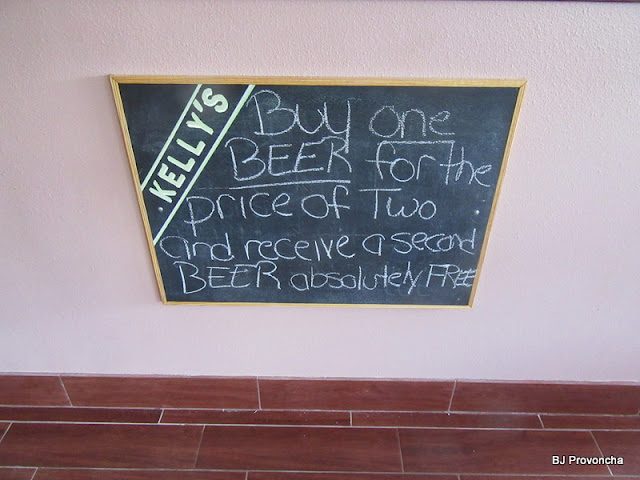 KELLY'S
Buy one
BEER for the
price of Two
and receive a second
BEER absolutely FREE
BJ Provoncha